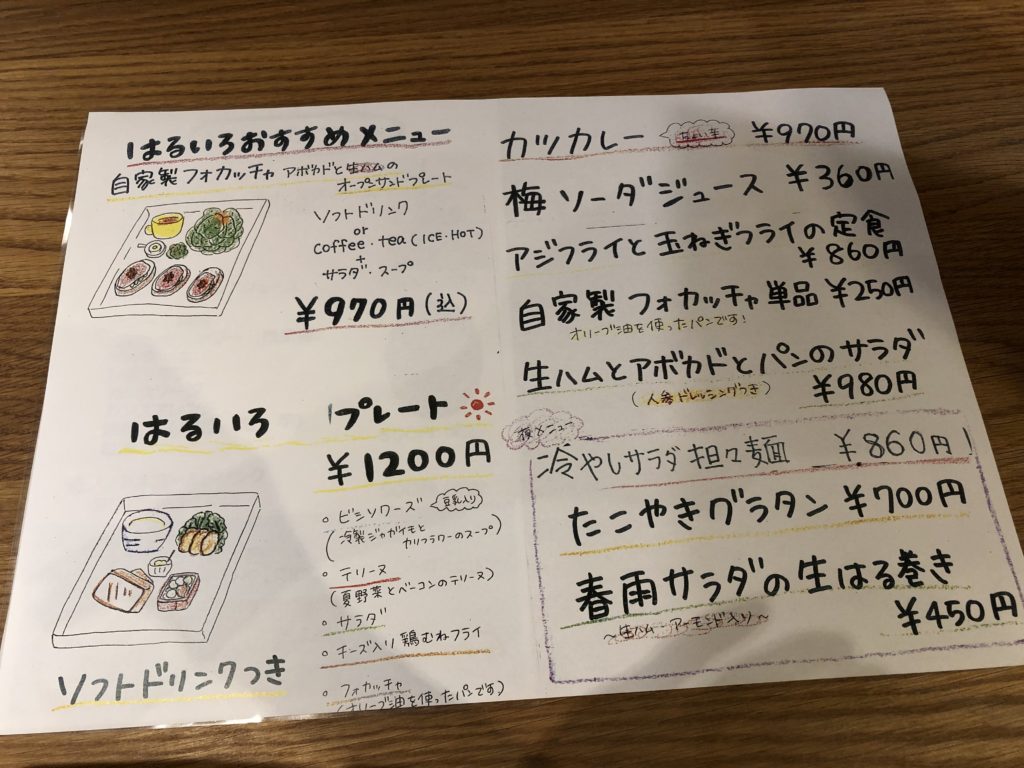 はるいろおすすめメニュー
自家製フォカッチャ アボカドと生ハムの
オープンサンドプレート
ソフトドリンク
or
coffee・tea (ICE・HOT)
+
サラダ・スープ
¥970円(込)
はるいろ プレート
¥1200円
。ビシソワーズ 豆乳入り
(冷製ジャガイモと
カリフラワーのスープ)
。テリーヌ
(夏野菜とベーコンのテリーヌ)
。サラダ
。チーズ入り鶏むねフライ
。フォカッチャ
(オリーブ油を使ったパンです)
ソフトドリンクつき
カツカレー ¥970円
梅ソーダジュース ¥360円
アジフライと玉ねぎフライの定食
¥860円
自家製フォカッチャ単品 ¥250円
オリーブ油を使ったパンです!
生ハムとアボカドとパンのサラダ
(人参ドレッシングつき) ¥980円
メニュー
冷やしサラダ担々麺 ¥860円!
たこやきグラタン ¥700円
春雨サラダの生はる巻き
¥450円
〜生ハム アーモンド入り〜